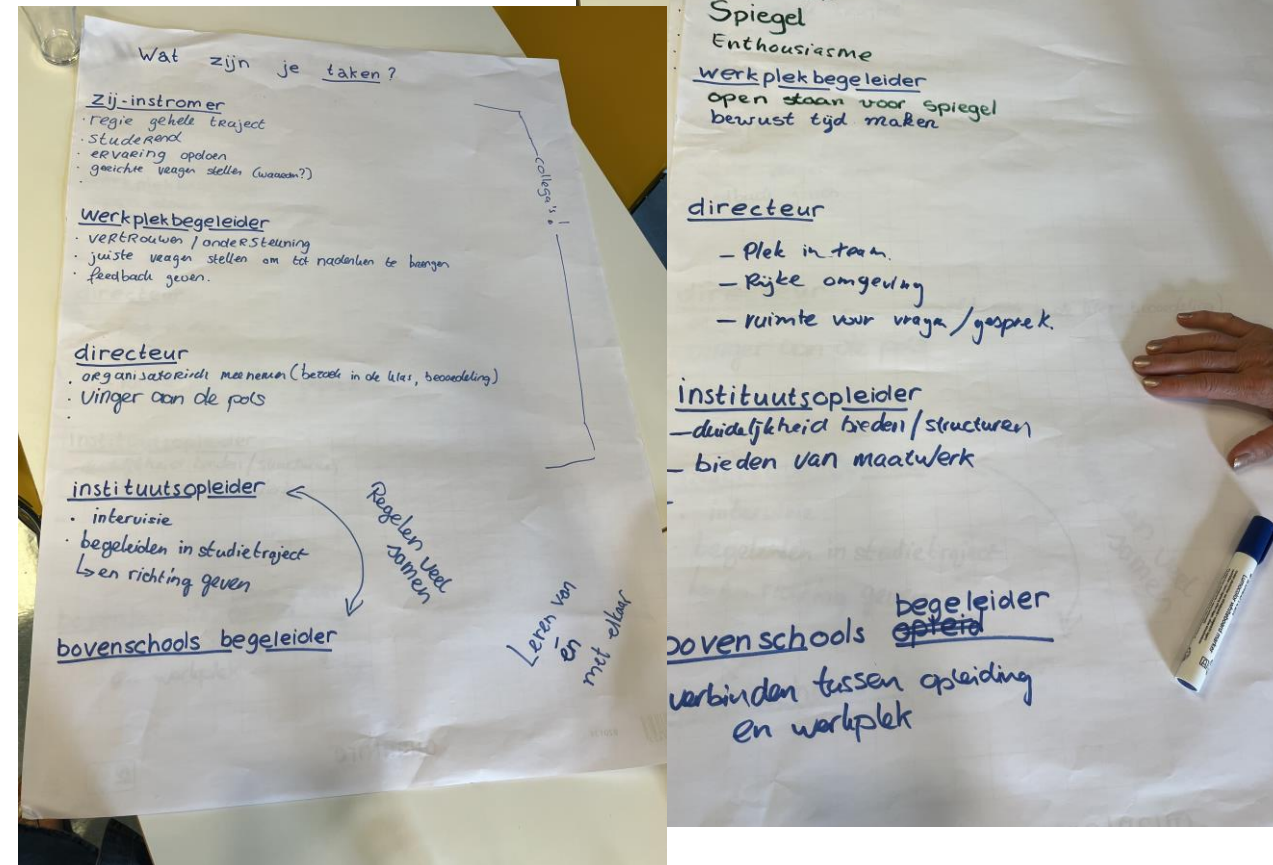 Wat zijn je taken?
zij-instromer
· regie gehele traject
· studerend
· ervaring opdoen
· gerichte vragen stellen (waarom?)
·
werkplekbegeleider
· vertrouwen / ondersteuning
· juiste vragen stellen om tot nadenken te brengen
· feedback geven.
directeur
· organisatorisch meenemen (bezoek in de klas, beoordeling)
· vinger aan de pols
·
collega's!
instituutsopleider
· intervisie
· begeleiden in studietraject
↳ en richting geven
Regelen veel
samen
bovenschools begeleider
Leren van
én
met elkaar
Spiegel
Enthousiasme
werkplekbegeleider
open staan voor spiegel
bewust tijd maken
directeur
- Plek in team.
- Rijke omgeving
- ruimte voor vragen/gesprek.
instituutsopleider
- duidelijkheid bieden/structuren
- bieden van maatwerk
-
begeleider
bovenschools opleid
verbinden tussen opleiding
en werkplek